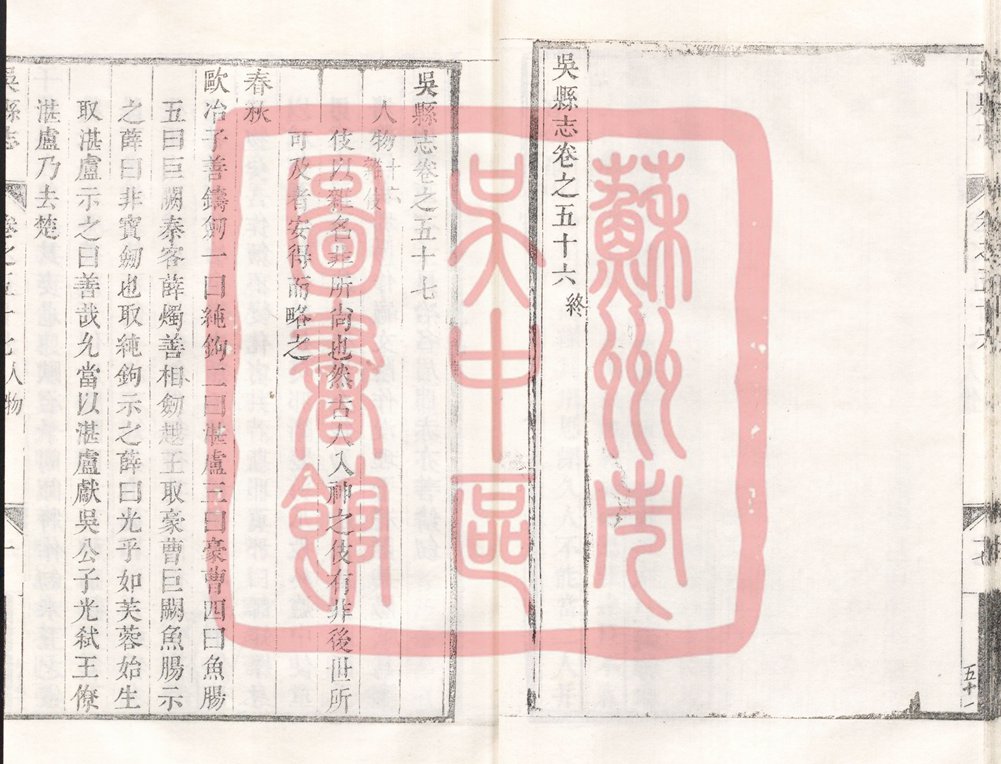 吳縣志卷之五十六終
五十一
吳縣志卷之五十七
人物十六
雜伎
伎以雜名非所尙也然古人入神之伎有非後世所
可及者安得而略之
春秋
歐冶子善鑄劒一曰純鉤二曰湛盧三曰豪曹四曰魚腸
五曰巨闕秦客薛燭善相劒越王取豪曹巨闕魚腸示
之薛曰非寶劒也取純鉤示之薛曰光乎如芙蓉始生
取湛盧示之曰善哉允當以湛盧獻吳公子光弑王僚
湛盧乃去楚
吳縣志 卷之五十七人物 一
蘇州市
吳中區
圖書館